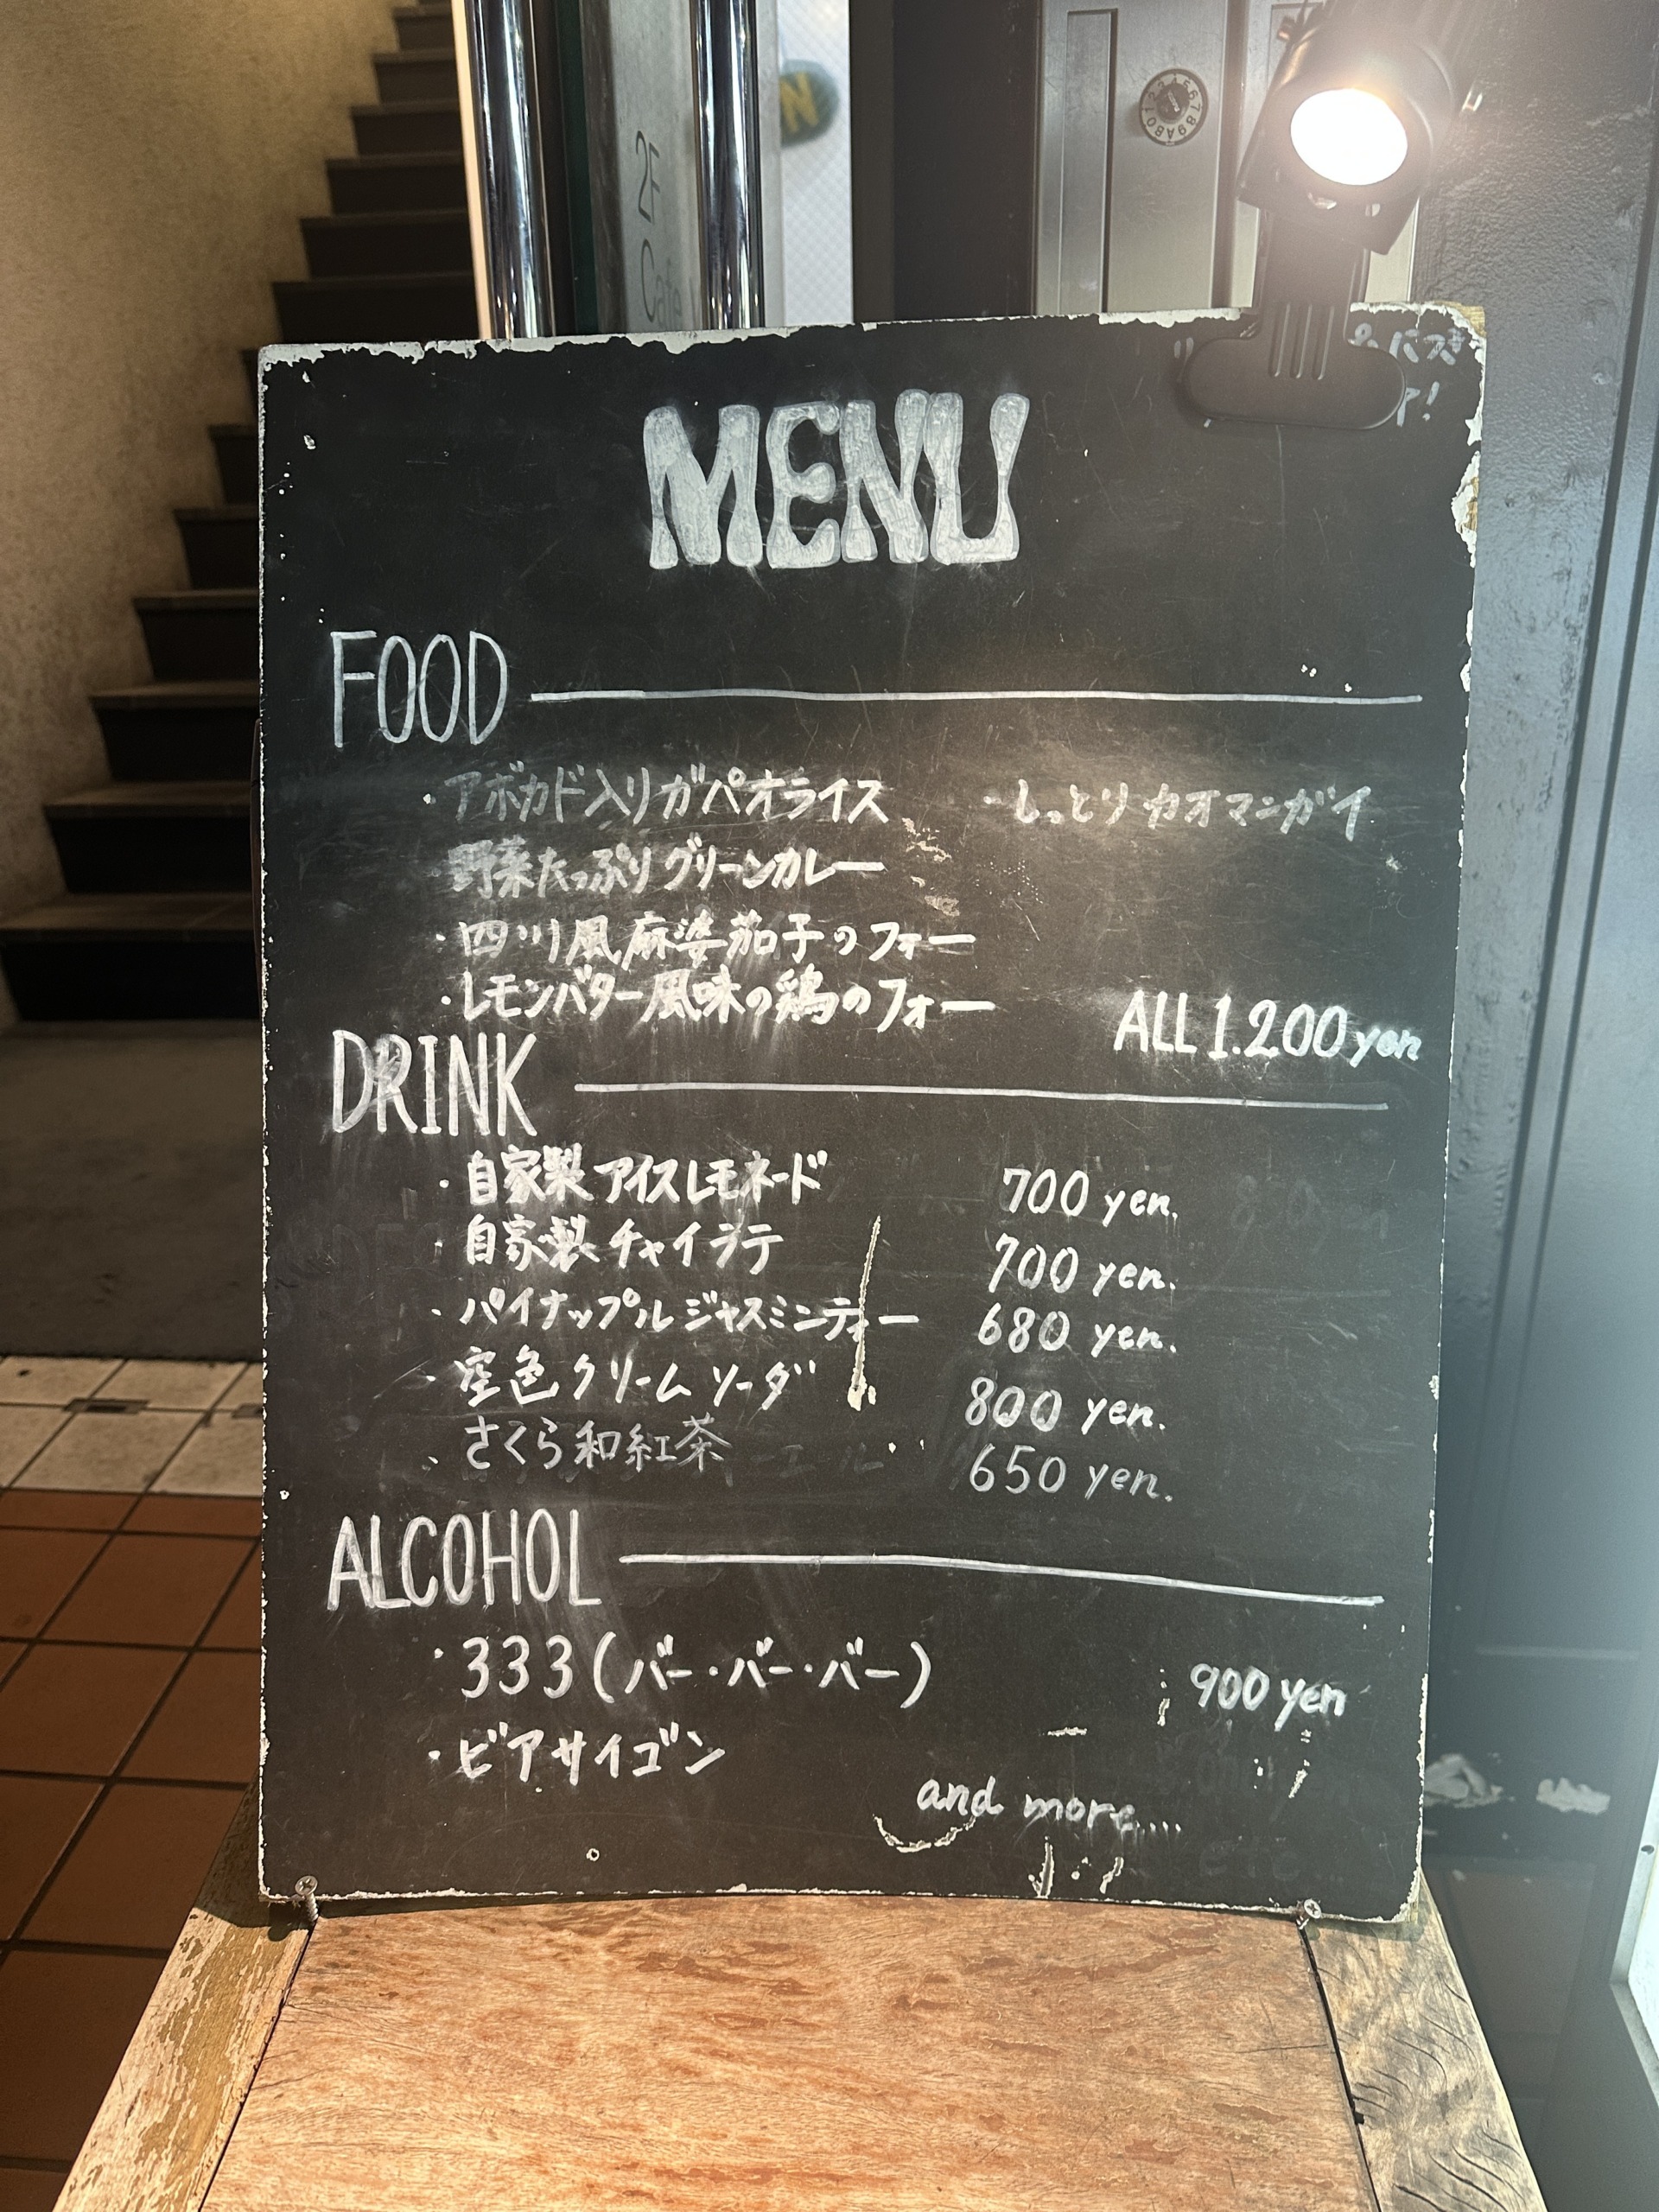 2F Cafe
MENU
FOOD
・アボカド入りガパオライス ・しっとりカオマンガイ
野菜たっぷりグリーンカレー
・四川風麻婆茄子のフォー
・レモンバター風味の鶏のフォー
ALL 1.200 yen
DRINK
・自家製アイスレモネード 700 yen.
・自家製チャイラテ 700 yen.
・パイナップルジャスミンティー 680 yen.
・空色クリームソーダ 800 yen.
・さくら和紅茶 650 yen.
ALCOHOL
・333(バー・バー・バー) 900 yen
・ビアサイゴン
and more....